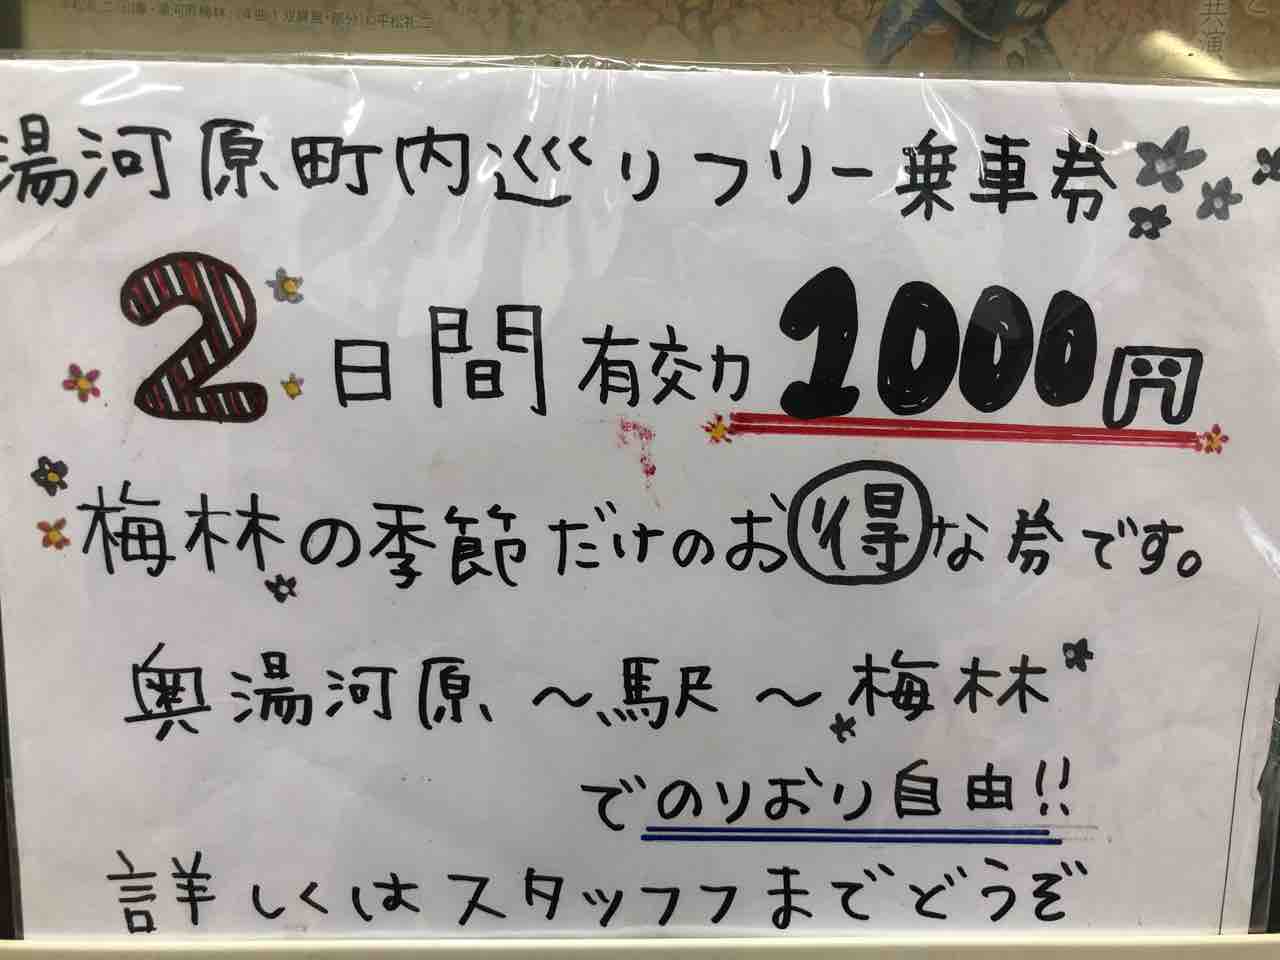 湯河原町内巡りフリー乗車券
2日間有効 1000円
梅林の季節だけのお得な券です。
奥湯河原〜駅〜梅林
でのりおり自由!!
詳しくはスタッフまでどうぞ